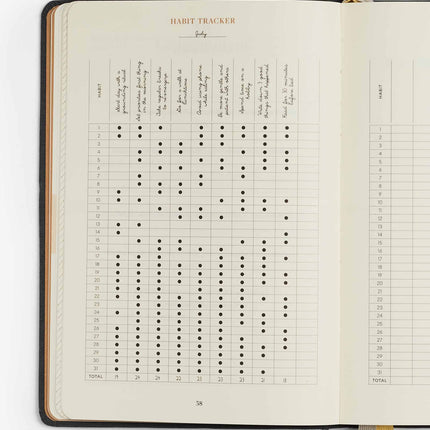 HABIT TRACKER
July
HABIT
Start day with a
grounding ritual
Set priorities first thing
in the morning
Take regular breaks
to reenergize
Go for a walk at
lunchtime
Avoid using phone
while eating
Be more gentle and
patient with others
Spend time on a
hobby
Write down 3 good
things that happened
Read for 30 minutes
before bed
1
2
3
4
5
6
7
8
9
10
11
12
13
14
15
16
17
18
19
20
21
22
23
24
25
26
27
28
29
30
31
TOTAL 19 24 24 22 23 24 23 21 18
58
HABIT
1
2
3
4
5
6
7
8
9
10
11
12
13
14
15
16
17
18
19
20
21
22
23
24
25
26
27
28
29
30
31
TOTAL